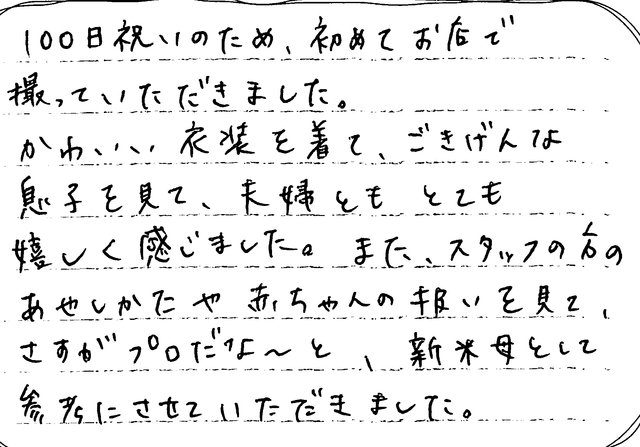 100日祝いのため、初めてお店で
撮っていただきました。
かわいい衣装を着て、ごきげんな
息子を見て、夫婦ともとても
嬉しく感じました。また、スタッフの方の
あやしかたや赤ちゃんの扱いを見て、
さすがプロだな～と、新米母として
参考にさせていただきました。